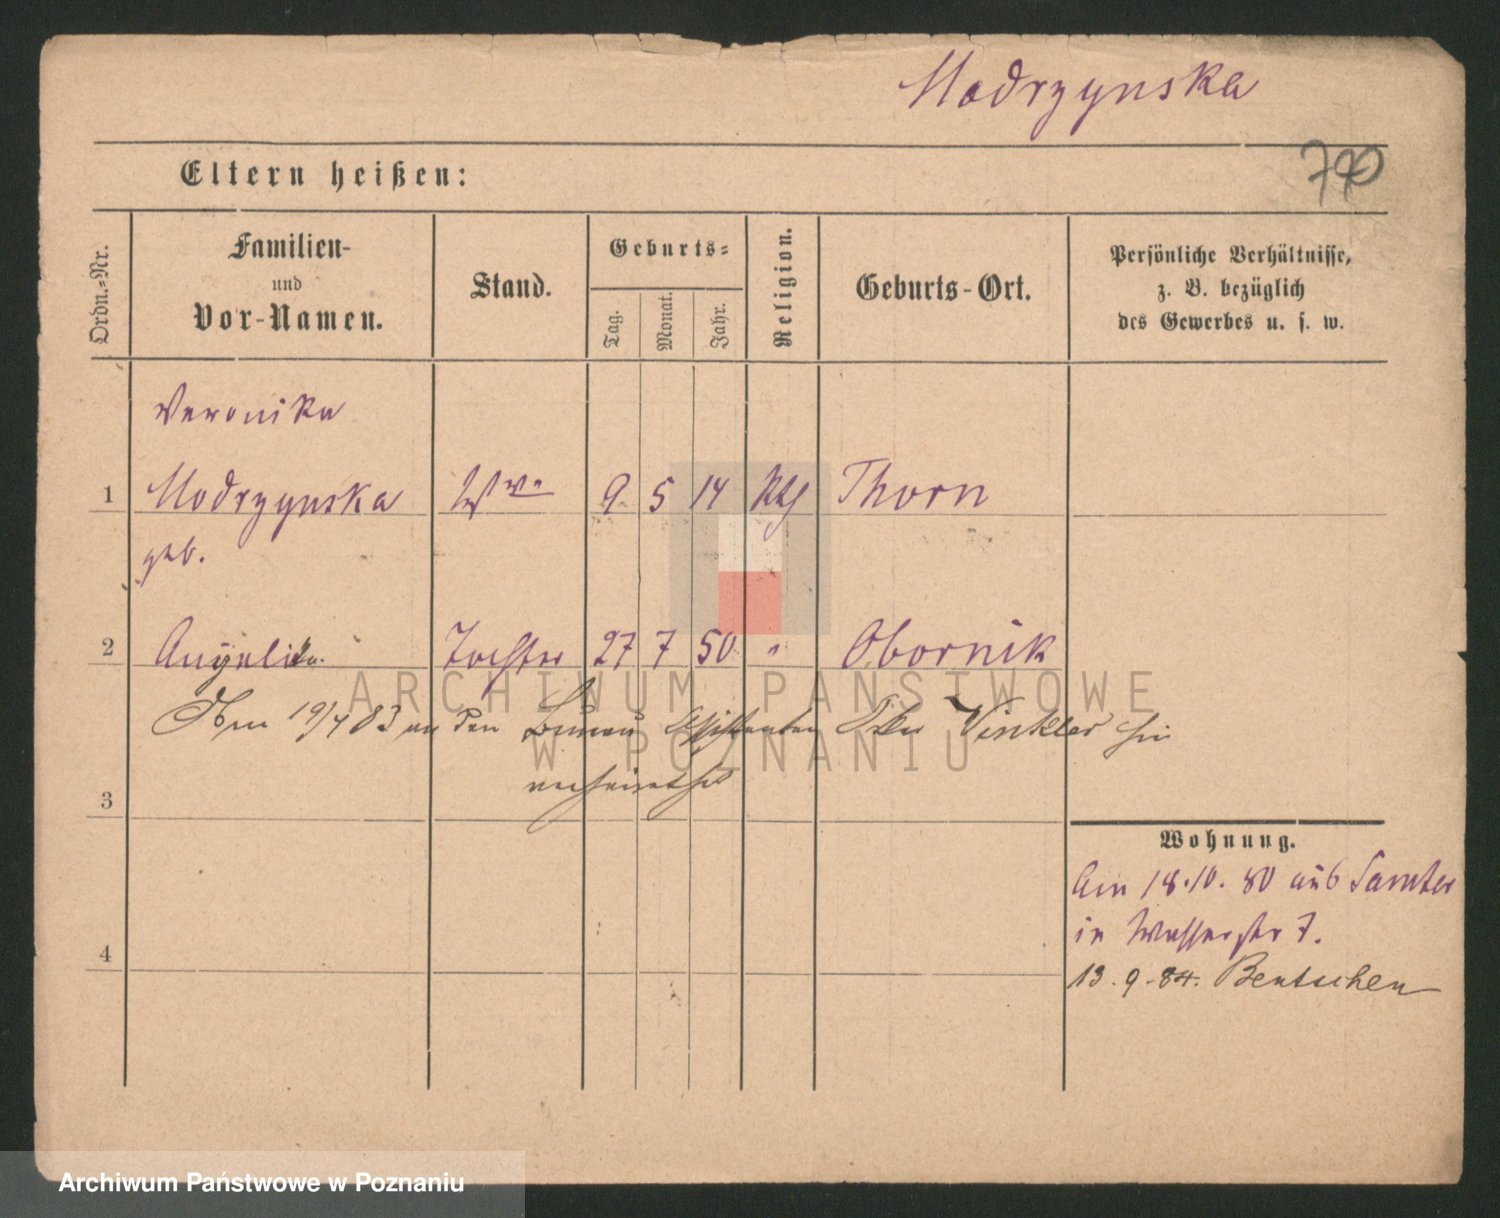 Modrzynska
790
Eltern heißen:
Ordn.-Nr.
Familien-
und
Vor-Namen.
Stand.
Geburts-
Tag.
Monat.
Jahr.
Religion.
Geburts-Ort.
Persönliche Verhältnisse,
z. B. bezüglich
des Gewerbes u. s. w.
Veronika
1 Modrzynska Wwe 9 5 14 Kth Thorn
geb.
2 Angelika. Tochter 27 7 50 " Obornik
19/7 83 an den Büreau Assistenten Winkler hier
verheirathet
3
Wohnung.
Am 18.10. 80 aus Samter
in Wasserstr 7.
4
13.9.84. Bentschen
ARCHIWUM PAŃSTWOWE
W POZNANIU
Archiwum Państwowe w Poznaniu